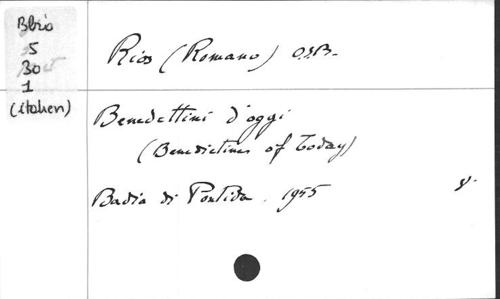 Bbrio
5
30
1
(italien)
Rios (Romano) O.S.B.
Benedettini d'oggi
(Benedictines of Today)
Badia di Pontida. 1955